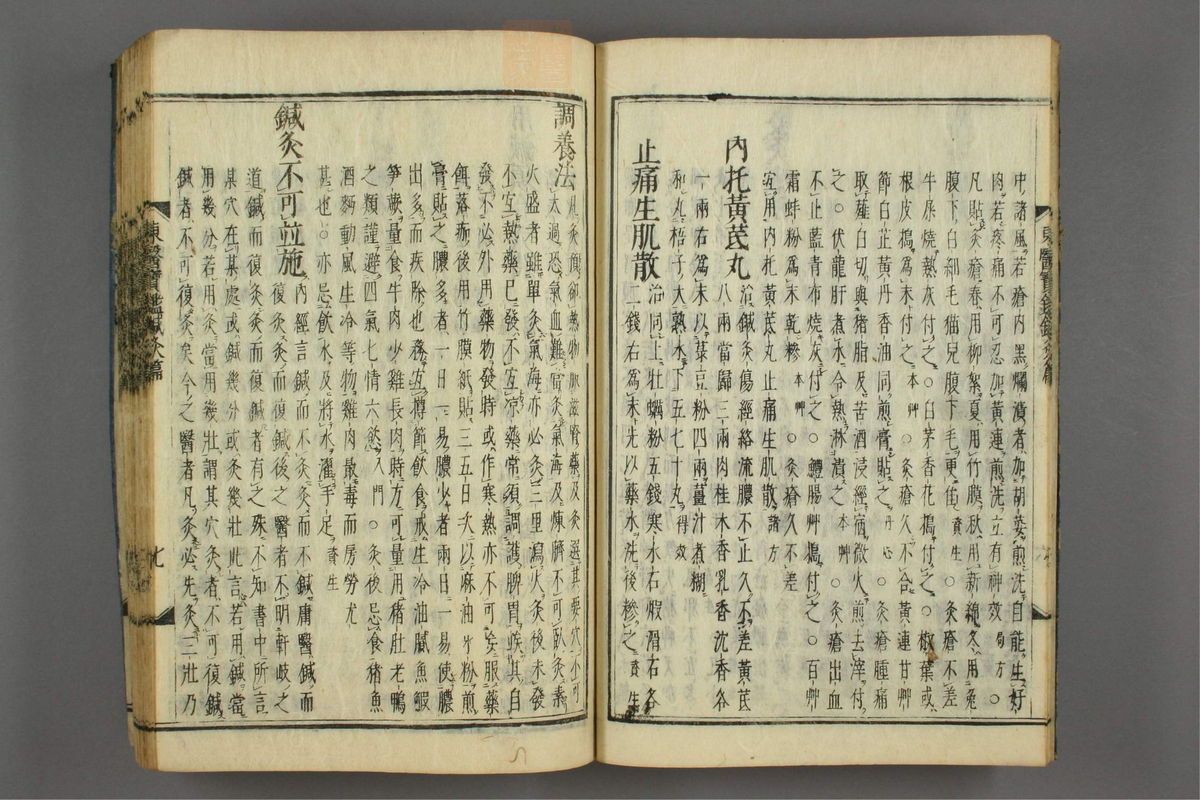 中諸風若瘡內黑爛潰者加胡荽煎洗自能生好
肉若疼痛不可忍加黃連煎洗立有神效 局方 ○
凡貼灸瘡春用柳絮夏用竹膜秋用新綿冬用兔
腹下白細毛猫兒腹下毛更佳 資生 ○灸瘡不差
牛屎燒熱灰付之 本草 ○灸瘡久不合黃連甘艸
節白芷黃丹香油同煎膏貼之 丹心 ○灸瘡腫痛
取薤白切與猪脂及苦酒浸經宿微火煎去滓付
之○伏龍肝煮水令熱淋漬之 本艸 ○灸瘡出血
不止藍青布燒灰付之○鱧腸艸搗付之○百艸
霜蚌粉爲末乾糝 本艸 ○灸瘡久不差
宜用內托黃芪丸止痛生肌散 諸方
內托黃芪丸 治鍼灸傷經絡流膿不止久不差黃芪
八兩當歸三兩肉桂木香乳香沈香各
一兩右爲末以菉豆粉四兩薑汁煮糊
和丸梧子大熟水下五七十丸 得效
止痛生肌散 治同上牡蠣粉五錢寒水石煆滑石各
二錢右爲末先以藥水洗後糝之 資生
調養法
火盛者雖單灸氣海亦必灸三里瀉火灸後未發
不宜熱藥已發不宜凉藥常須調護脾胃俟其自
發不必外用藥物發時或作寒熱亦不可妄服藥
餌落痂後用竹膜紙貼三五日次以麻油水粉煎
膏貼之膿多者一日一易膿少者兩日一易使膿
出多而疾除也務宜撙節飮食戒生冷油膩魚鰕
筍蕨量食牛肉少雞長肉時方可量用猪肚老鴨
之類謹避四氣七情六慾 入門 ○灸後忌食猪魚
酒麪動風生冷等物雞肉最毒而房勞尤
甚也○亦忌飮水及將水濯手足 資生
鍼灸不可竝施 內經言鍼而不灸灸而不鍼庸醫鍼而
復灸灸而復鍼後之醫者不明軒岐之
道鍼而復灸灸而復鍼者有之殊不知書中所言
某穴在某處或鍼幾分或灸幾壯此言若用鍼當
用幾分若用灸當用幾壯謂其穴灸者不可復鍼
鍼者不可復灸矣今之醫者凡灸必先灸三壯乃